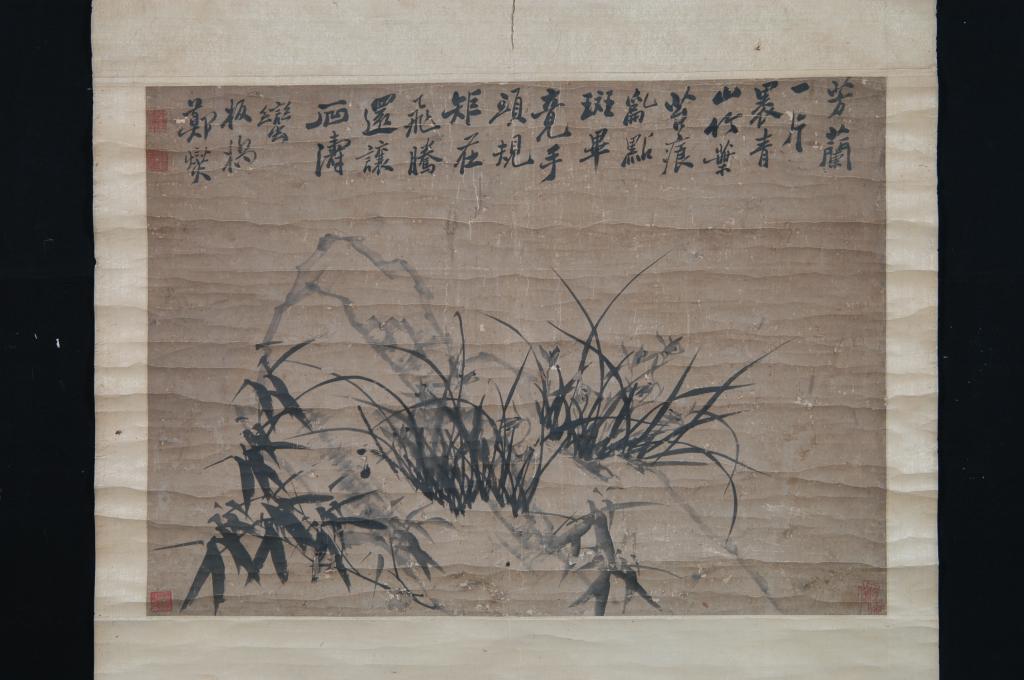 芳蘭
一片
裹青
山竹葉
苔痕
亂點
斑畢
竟手
頭規
矩在
飛騰
還讓
石濤
蠻
板橋
鄭燮